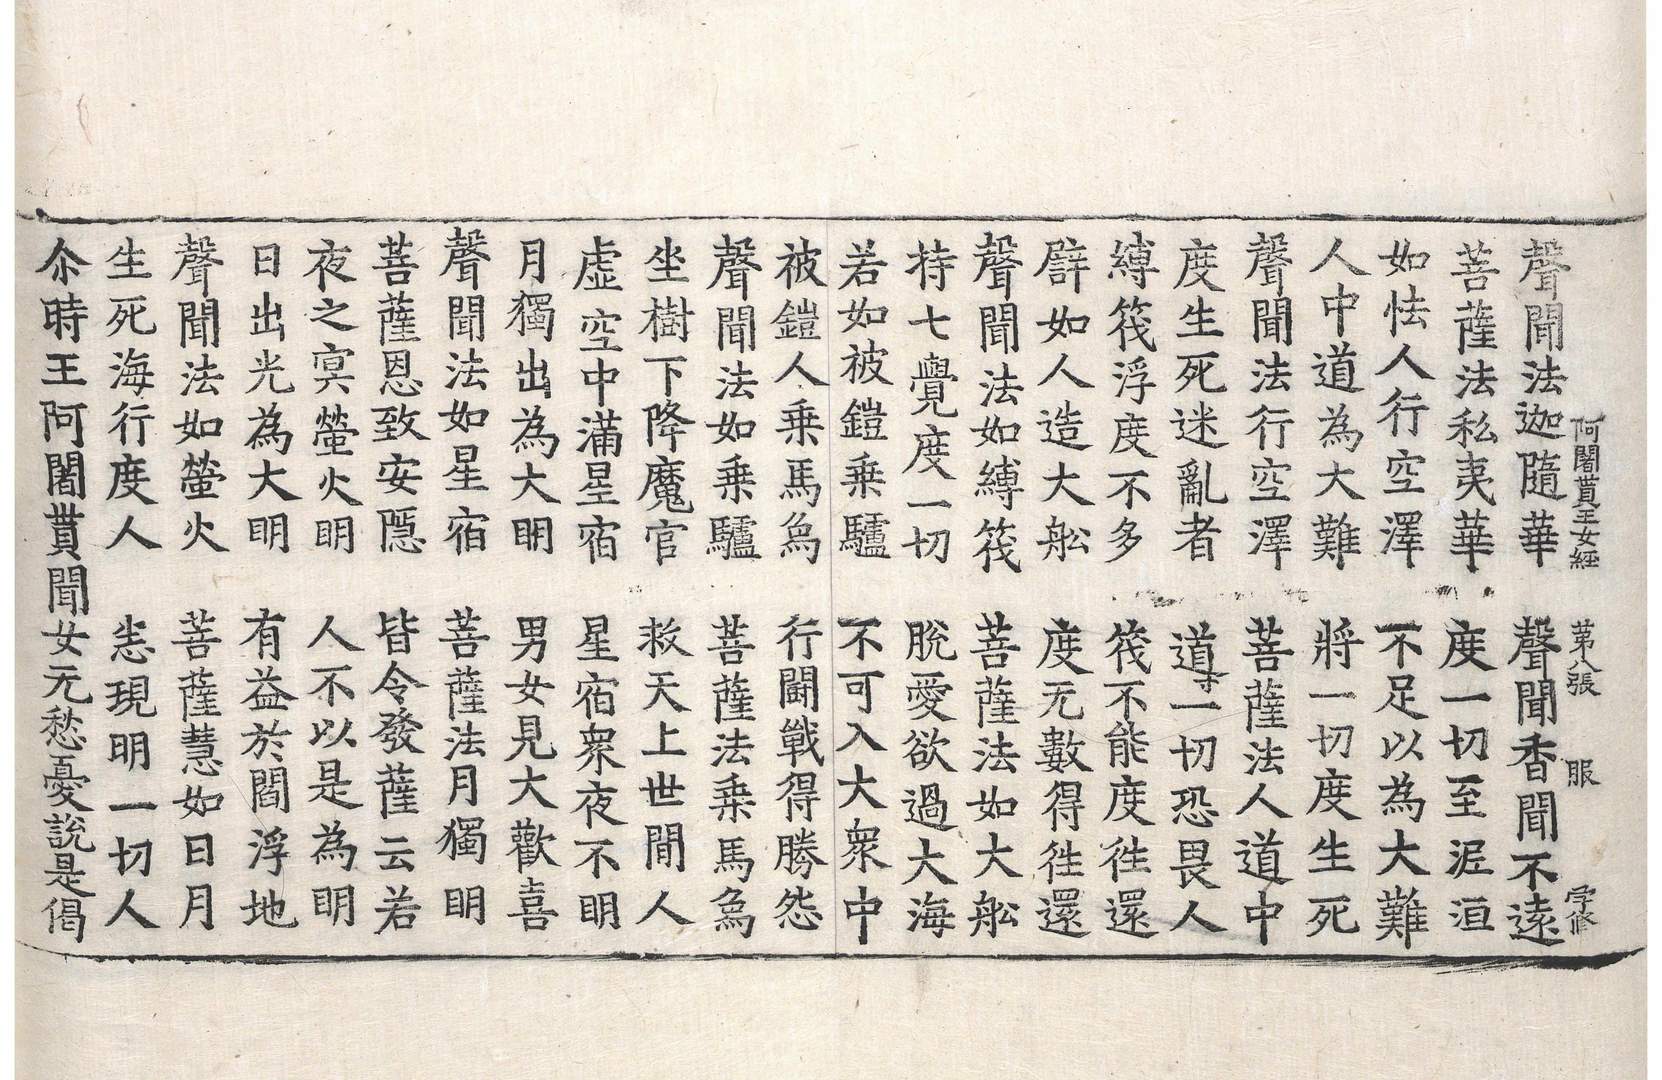 阿闍貰王女經 第八張 服 孛修
聲聞法迦隨華 聲聞香聞不遠
菩薩法私夷華 度一切至泥洹
如怯人行空澤 不足以為大難
人中道為大難 將一切度生死
聲聞法行空澤 菩薩法人道中
度生死迷亂者 導一切恐畏人
縛筏浮度不多 筏不能度徃還
譬如人造大舩 度无數得徃還
聲聞法如縛筏 菩薩法如大舩
持七覺度一切 脫愛欲過大海
若如被鎧乗驢 不可入大衆中
被鎧人乗馬爲 行鬬戰得勝怨
聲聞法如乗驢 菩薩法乗馬爲
坐樹下降魔官 救天上世間人
虛空中滿星宿 星宿衆夜不明
月獨出為大明 男女見大歡喜
聲聞法如星宿 菩薩法月獨明
菩薩恩致安隱 皆令發薩云若
夜之冥螢火明 人不以是為明
日出光為大明 有益於閻浮地
聲聞法如螢火 菩薩慧如日月
生死海行度人 悉現明一切人
尒時王阿闍貰聞女无愁憂說是偈